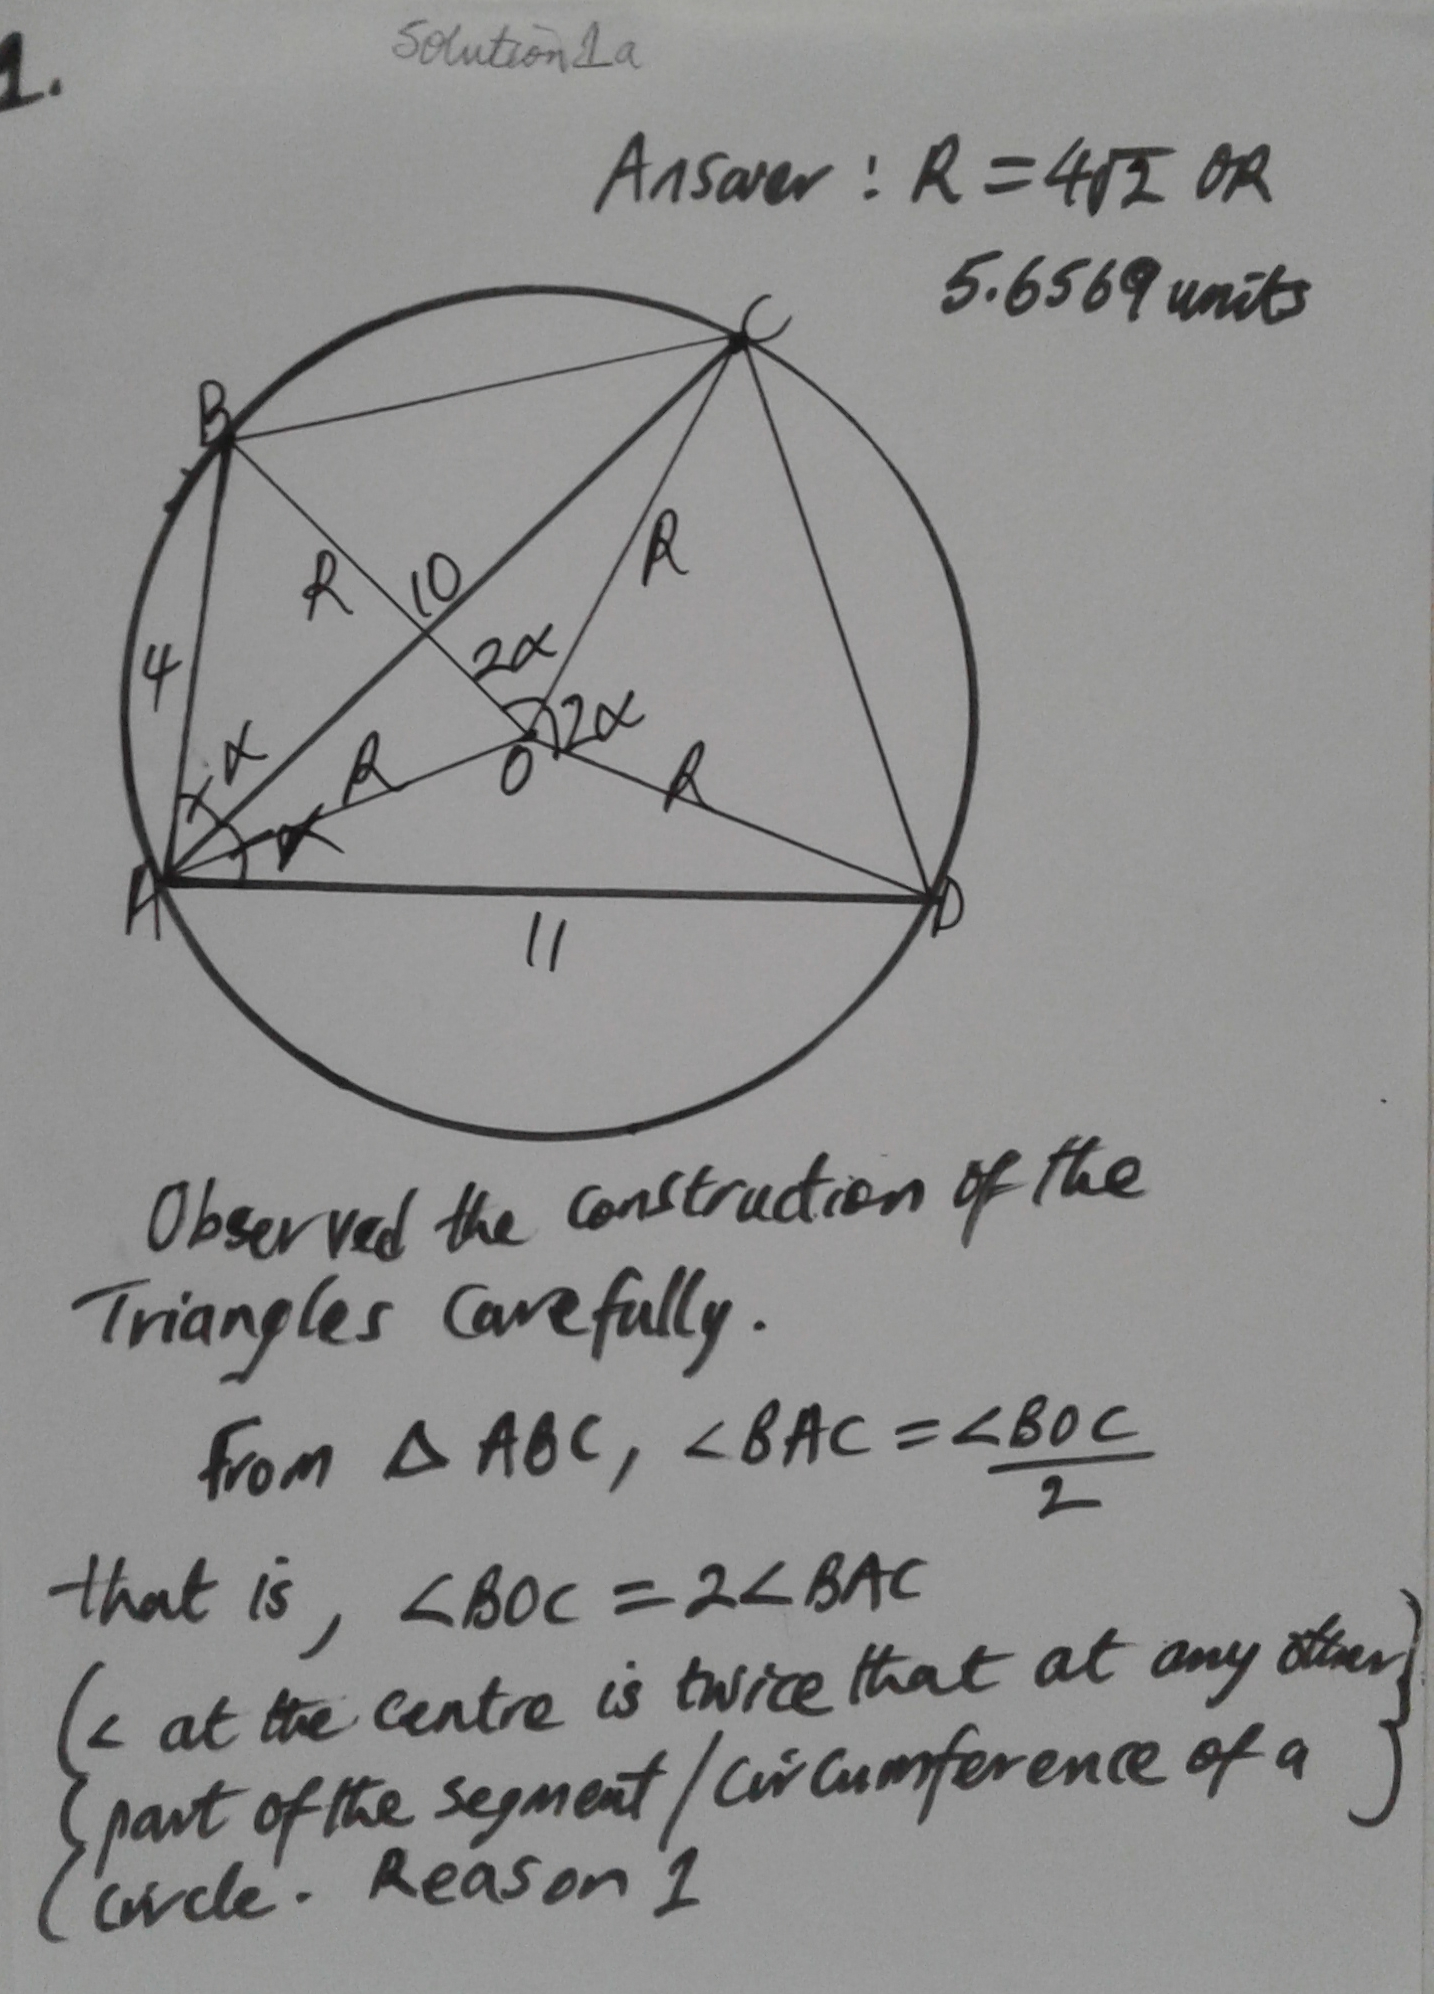 1.
Solution 1a
Answer : R = 4√2 OR
5.6569 units
C
B
R
10
R
4
2α
α
2α
R
O
R
α
A
D
11
Observed the construction of the
Triangles Carefully.
From Δ ABC, <BAC = <BOC/2
that is, <BOC = 2<BAC
(< at the centre is twice that at any other)
part of the segment / circumference of a
circle. Reason 1